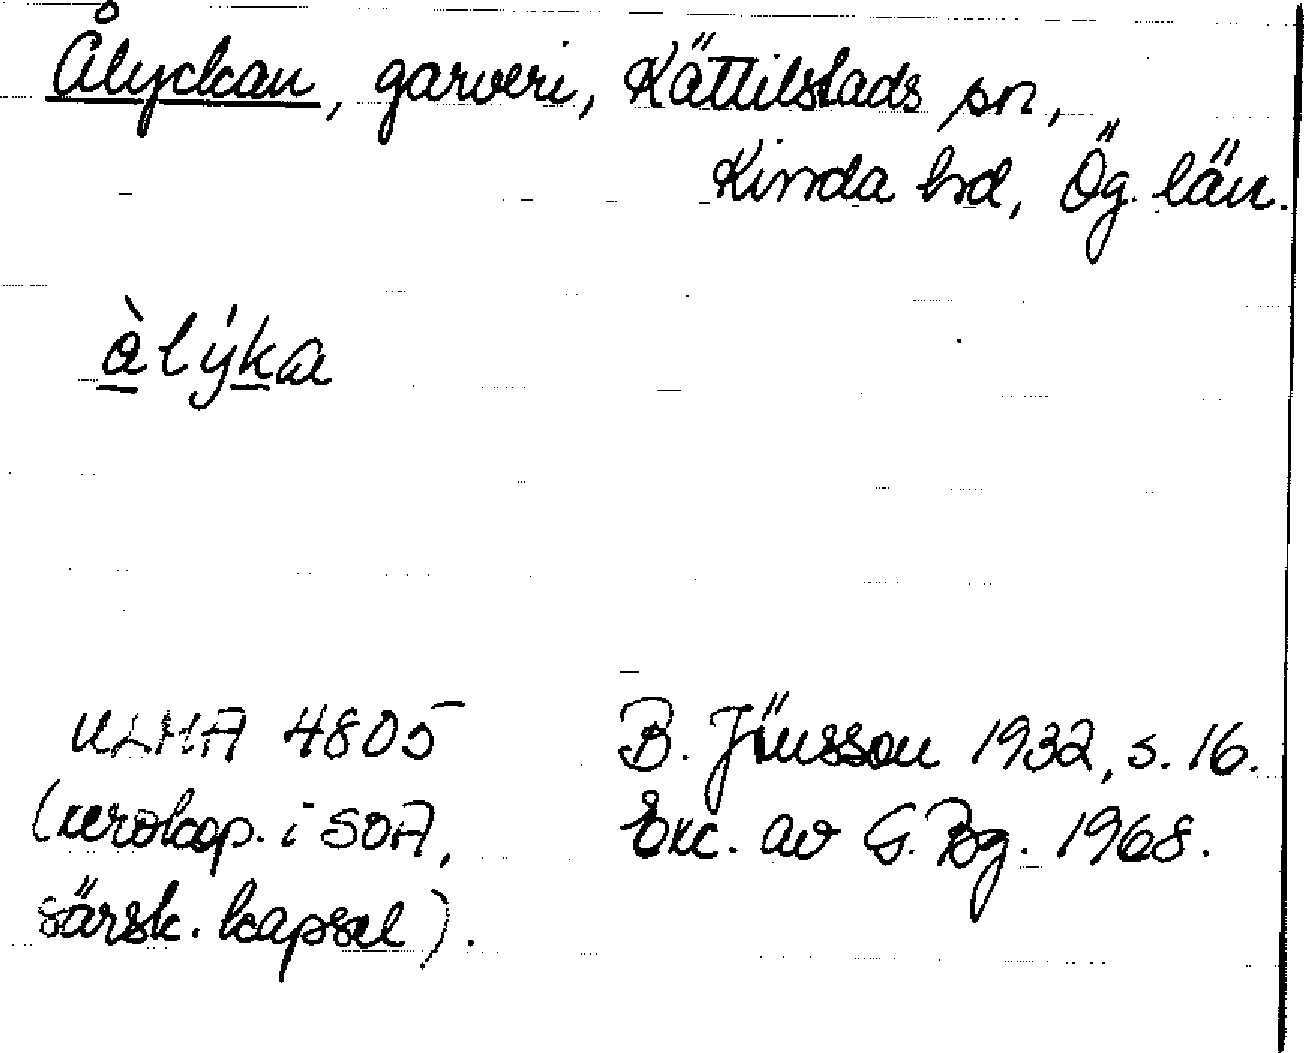 Ålyckan, garveri, Kättilstads sn,
Kinda hd, Ög. län.
àlýka
ULMA 4805
(xerokop. i SOA,
särsk. kapsel).
B. Jönsson 1932, s. 16.
Exc. av G. Bg. 1968.